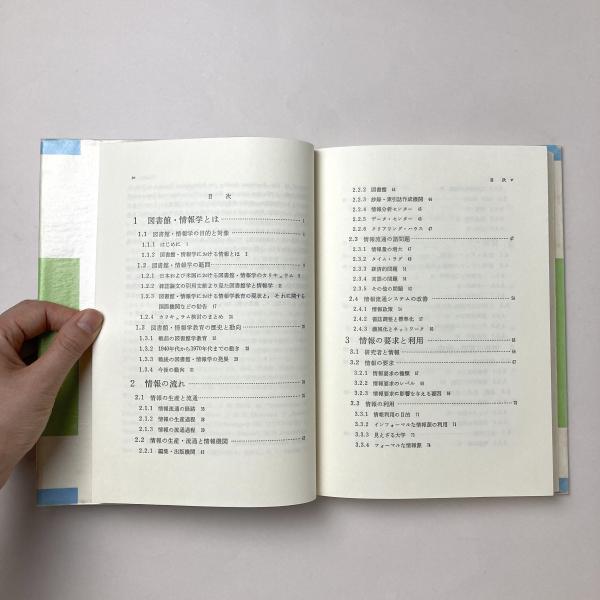 目 次
1 図書館・情報学とは 1
1.1 図書館・情報学の目的と対象
1.1.1 はじめに 1
1.1.2 図書館・情報学における情報とは 2
1.2 図書館・情報学の範囲
1.2.1 日本および米国における図書館・情報学のカリキュラム
1.2.2 雑誌論文の引用文献より見た図書館学と情報学
1.2.3 図書館・情報学における情報学教育の現状と，それに関する
国際機関などの勧告 17
1.2.4 カリキュラム検討のまとめ
1.3 図書館・情報学教育の歴史と動向
1.3.1 戦前の図書館学教育
1.3.2 1940年代から1970年代までの動き
1.3.3 戦後の図書館・情報学の発展
1.3.4 今後の動向
2 情報の流れ
2.1 情報の生産と流通
2.1.1 情報流通の経路
2.1.2 情報の生産過程
2.1.3 情報の流通過程
2.2 情報の生産・流通と情報機関
2.2.1 編集・出版機関
目 次
2.2.2 図書館
2.2.3 抄録・索引誌作成機関
2.2.4 情報分析センター
2.2.5 データ・センター
2.2.6 クリアリング・ハウス 47
2.3 情報流通の諸問題
2.3.1 情報量の増大
2.3.2 タイム・ラグ
2.3.3 経済的問題
2.3.4 言語の問題
2.3.5 その他の問題
2.4 情報流通システムの改善
2.4.1 情報政策
2.4.2 書誌調整と標準化
2.4.3 機械化とネットワーク
3 情報の要求と利用
3.1 研究者と情報
3.2 情報の要求
3.2.1 情報要求の種類
3.2.2 情報要求のレベル
3.2.3 情報要求に影響を与える要因
3.3 情報の利用
3.3.1 情報利用の目的
3.3.2 インフォーマルな情報源の利用
3.3.3 見えざる大学
3.3.4 フォーマルな情報源